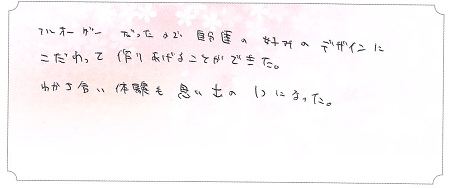 フルオーダーだったので自分達の好みのデザインに
こだわって作りあげることができた。
わかち合い体験も思い出の1つになった。